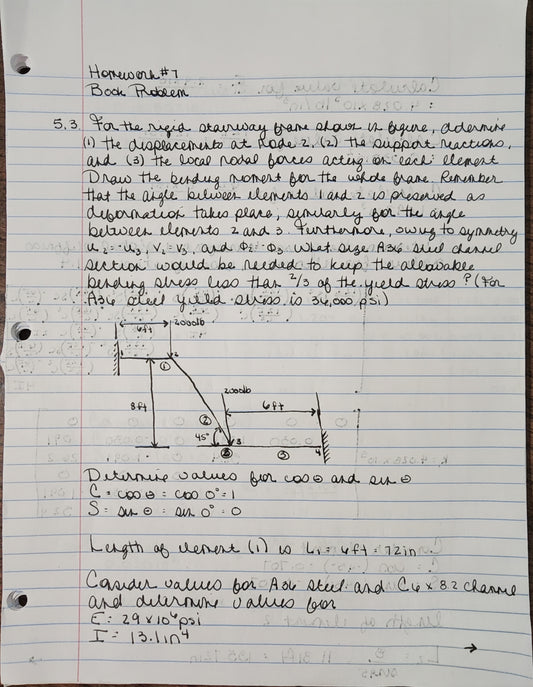 Homework #7
Book Problem
5.3. For the rigid stairway frame shown in figure, determine
(1) the displacements at node 2, (2) the support reactions,
and (3) the local nodal forces acting on each element
Draw the bending moment for the whole frame. Remember
that the angle between elements 1 and 2 is preserved as
deformation takes place, similarly for the angle
between elements 2 and 3. Furthermore, owing to symmetry
u₂ = -u₃, V₂ = V₃, and Φ₂ = -Φ₃ What size A36 steel channel
section would be needed to keep the allowable
bending stress less than 2/3 of the yield stress? (For
A36 steel yield stress is 36,000 psi)
6ft 2000lb
1 2
①
8ft
2000lb
6ft
②
45° 3 4
③
Determine values for cos Θ and sin Θ
C = cos Θ = cos 0° = 1
S = sin Θ = sin 0° = 0
Length of element (1) is L₁ = 6ft = 72in
Consider values for A36 steel and C6 x 8.2 channel
and determine values for
E = 29 x 10⁶ psi
I = 13.1 in⁴
→